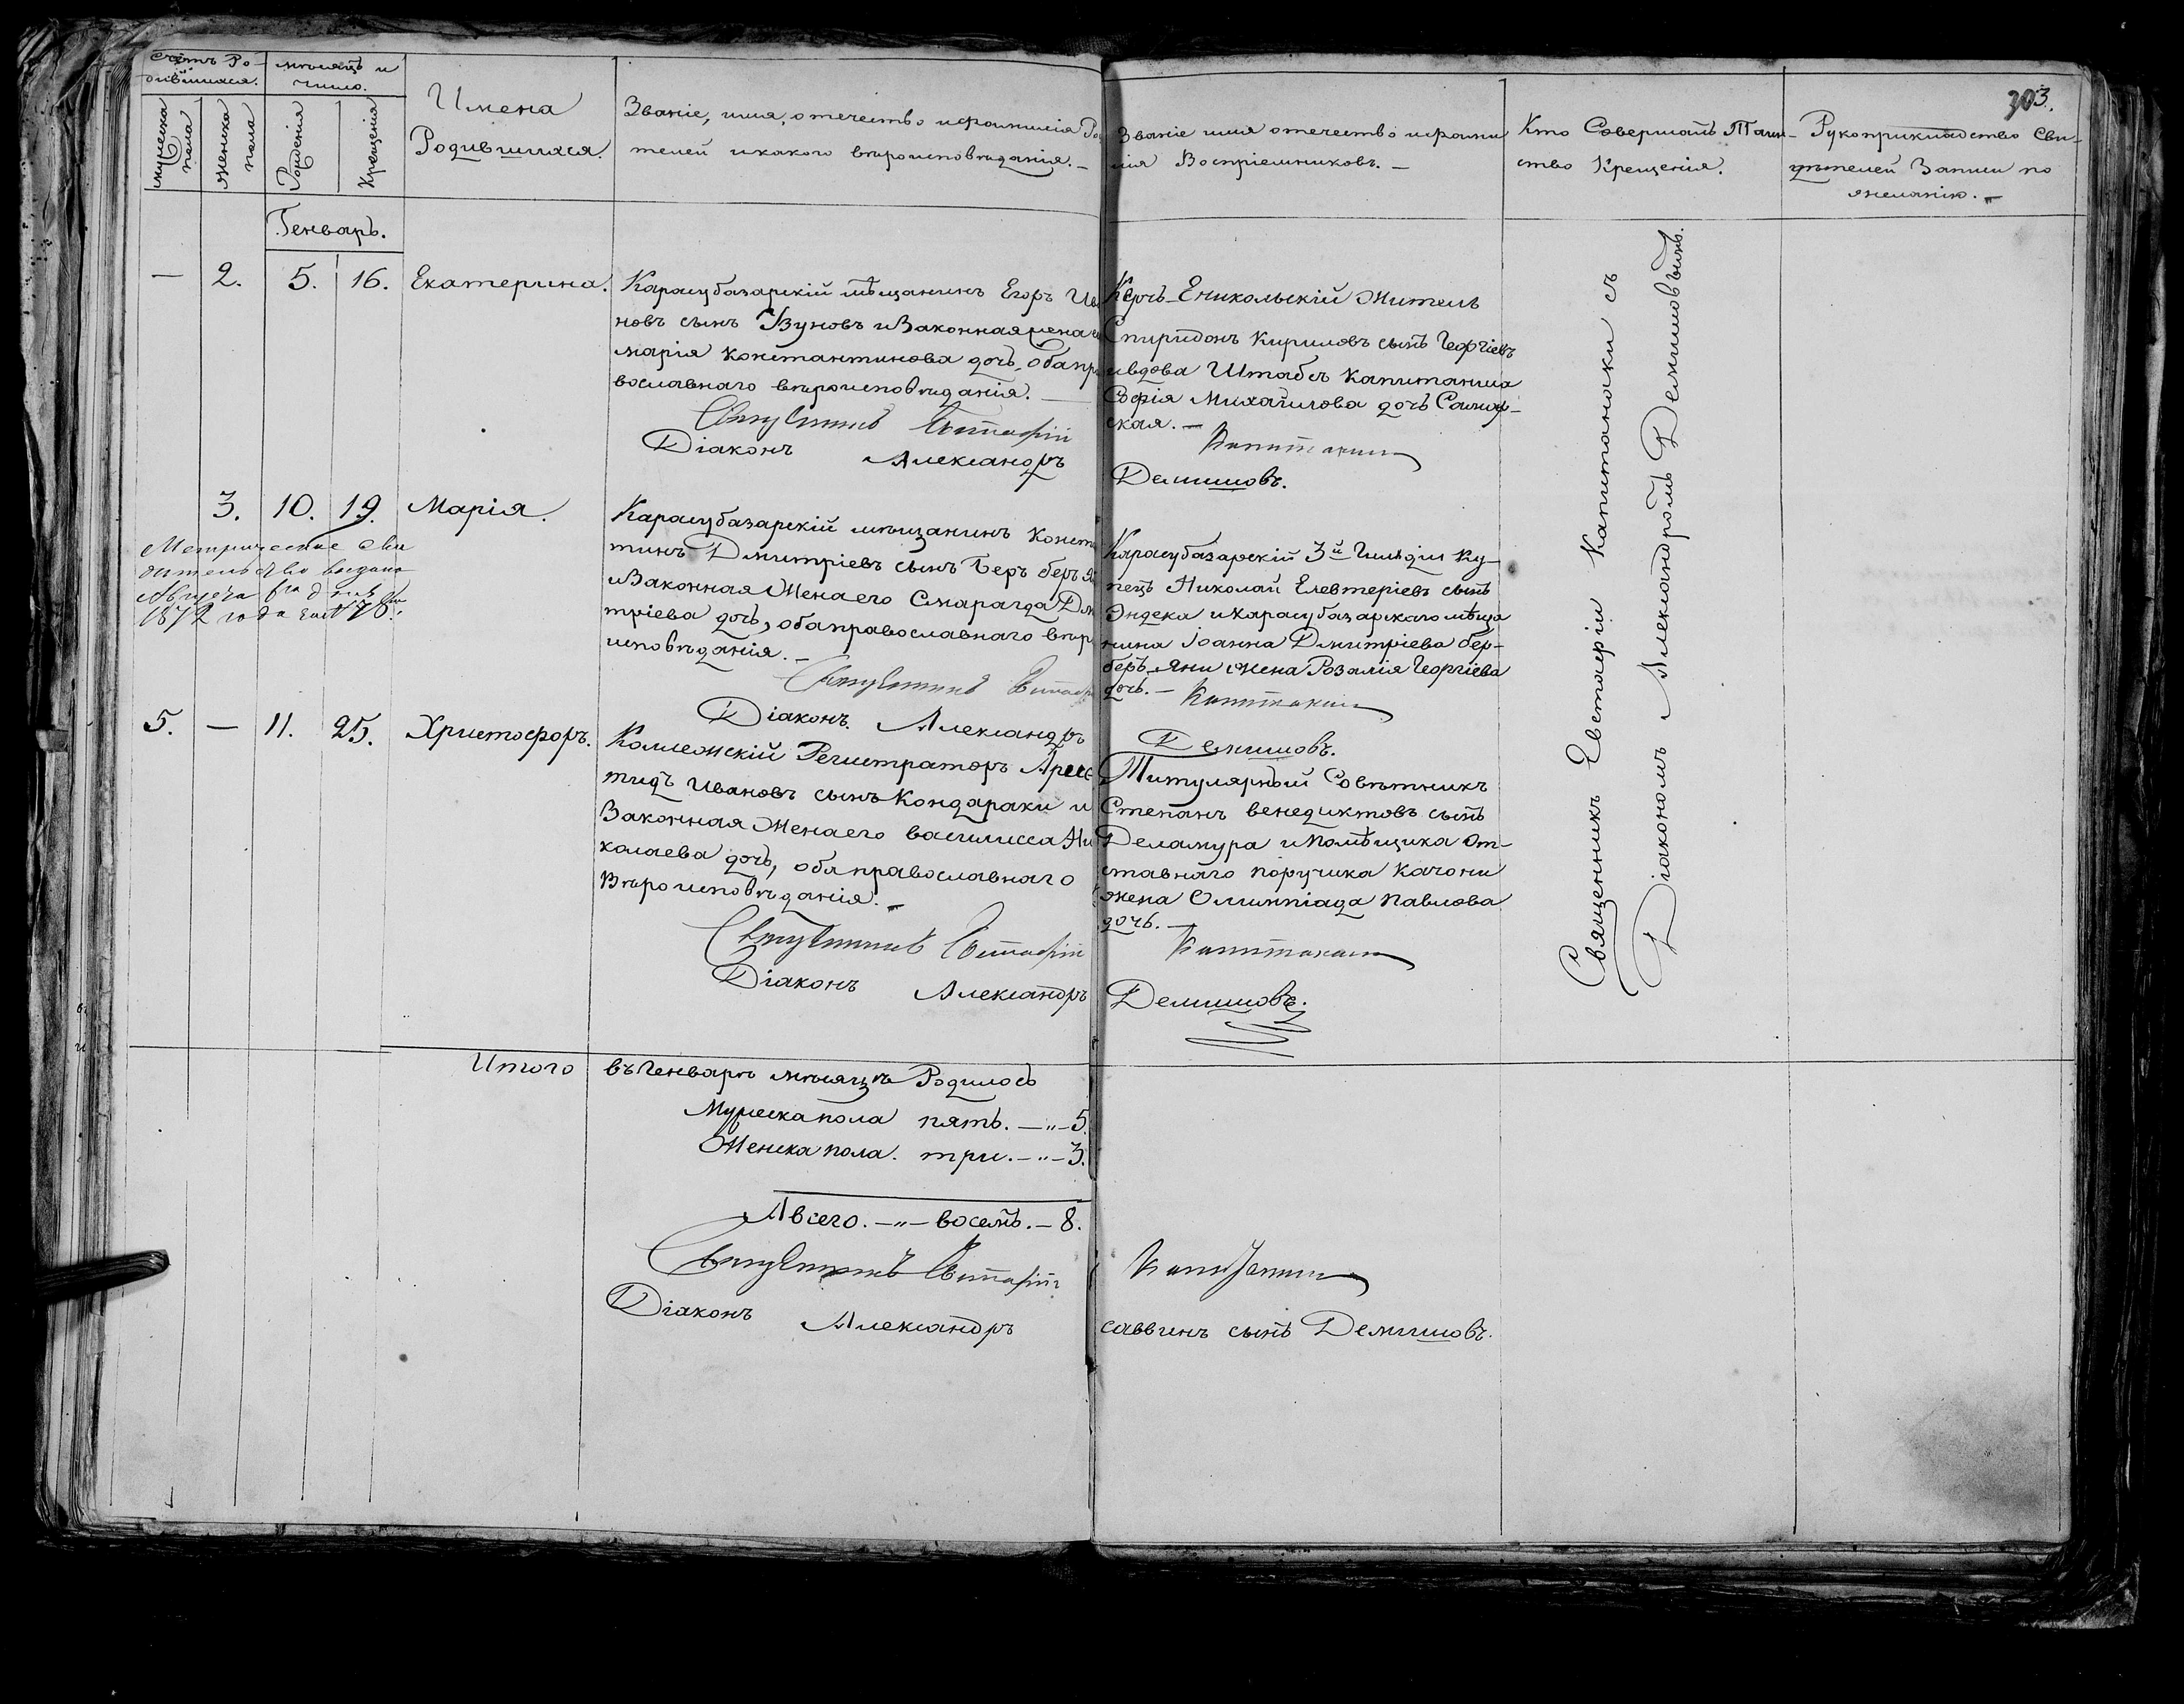 303.
Счетъ Ро-
дившихся.
мѣсяцъ и
число.
мужеска
пола
женска
пола
Рожденія
Крещенія
Имена
Родившихся.
Званіе, имя, отечество и фамилія Ро
телей и какого вѣроисповѣданія. —
Званіе имя отечество и фами
лія Воспріемниковъ. —
Кто Совершалъ Таин-
ство Крещенія.
Рукоприкладство Сви-
дѣтелей Записи по
желанію. —
Генварь.
— 2. 5. 16. Екатерина.
Карасубазарскій мѣщанинъ Егоръ Ива
новъ сынъ Узуновъ и Законная жена его
марія константинова дочь, оба пра
вославнаго вѣроисповѣданія. —
Священникъ Евстафій
Діаконъ Александръ
Керчь-Еникольскій житель
Спиридонъ Кириловъ сынъ Георгіевъ
и вдова Штабсъ капитанша
Софія Михайлова дочь
ская. —
Капитанаки
Демишовъ.
3. 10. 19. Марія.
Метрическое сви
дительство выдано
Августа дня
1872 года за №
Карасубазарскій мѣщанинъ Конста
тинъ Дмитріевъ сынъ Беръ беръ Я
и Законная Жена его Смарагда Дм
тріева дочь, оба православнаго вѣро
исповѣданія. —
Священникъ Евстафій
Діаконъ. Александръ
Карасубазарскій 3й Гильдіи Ку-
пецъ Николай Елевтеріевъ сынъ
Эндека и карасубазарскаго мѣща
нина Іоанна Дмитріева бер-
беръ-Яни жена Розалія Георгіева
дочь. — Капитанаки
Демишовъ.
5. — 11. 25. Христофоръ.
Коллежскій Регистраторъ Арис
тидъ Ивановъ сынъ Кондараки и
Законная Жена его василисса Ни
колаева дочь, оба православнаго
Вѣроисповѣданія. —
Священникъ Евстафій
Діаконъ Александръ
Титулярный Совѣтникъ
Степанъ венедиктовъ сынъ
Деламура и помѣщика от-
ставнаго поручика Качони
жена Олимпіада павлова
дочь. —
Капитанаки
Демишовъ.
Священникъ Евстафій Капитанаки съ
Діакономъ Александромъ Демишовымъ.
Итого въ Генварѣ мѣсяцѣ Родилось
Мужеска пола пять. — „ — 5.
Женска пола. три. — „ — 3.
А всего. — „ — восемь. — 8.
Священникъ Евстафій Капитанаки
Діаконъ Александръ саввинъ сынъ Демишовъ.